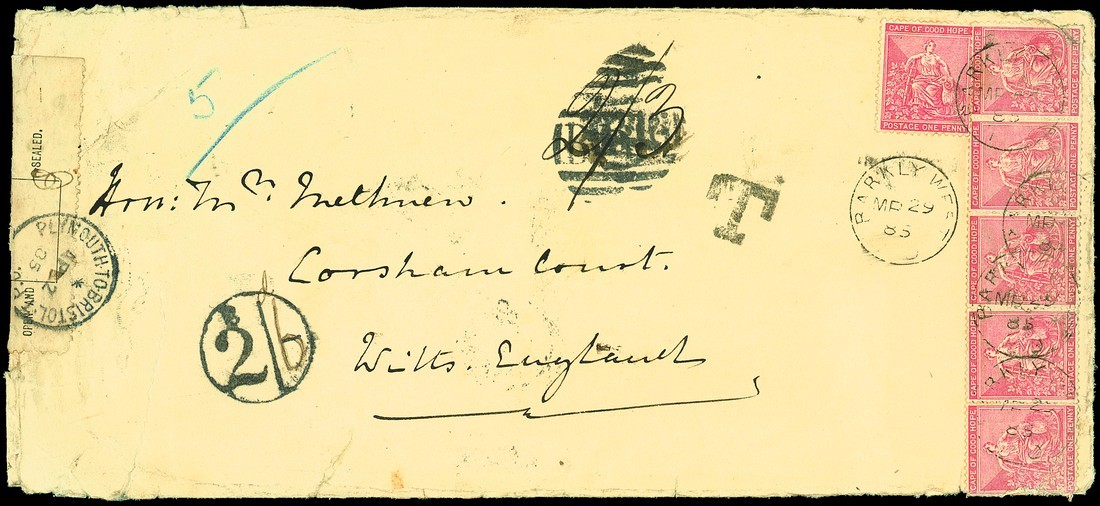 5
2/3
CAPE OF GOOD HOPE
POSTAGE ONE PENNY
CAPE OF GOOD HOPE
POSTAGE ONE PENNY
CAPE OF GOOD HOPE
POSTAGE ONE PENNY
CAPE OF GOOD HOPE
POSTAGE ONE PENNY
CAPE OF GOOD HOPE
POSTAGE ONE PENNY
CAPE OF GOOD HOPE
POSTAGE ONE PENNY
T
BARKLY WEST
MR 29
85
Hon: Mrs Methuen.
Corsham Court.
Wilts. England
2/6
OPEN AND
SEALED.
PLYMOUTH-TO-BRISTOL
85